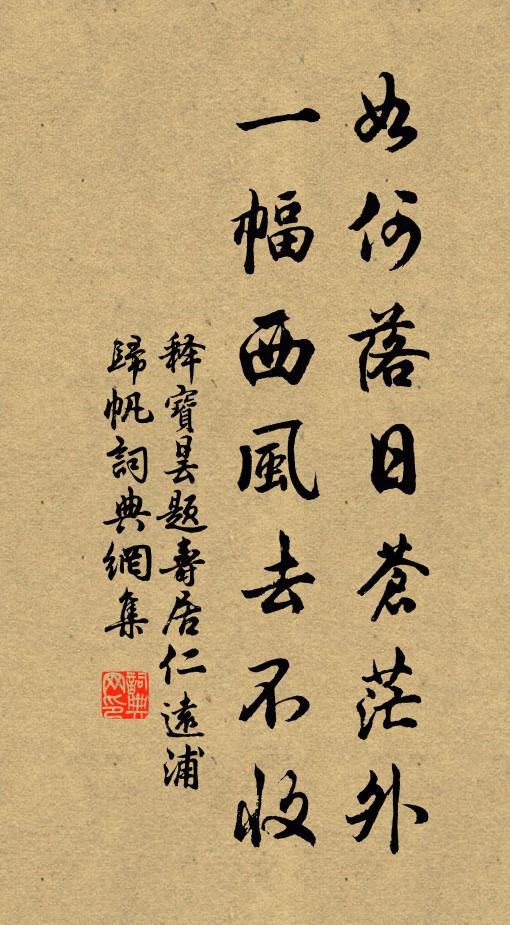 如何落日蒼茫外
一幅西風去不收
释寶曇題壽居仁遠浦
歸帆詞典網集
詞典
网印